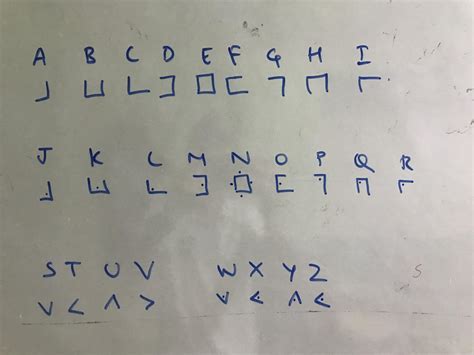 A B C D E F G H I
J K L M N O P Q R
S T U V W X Y Z S